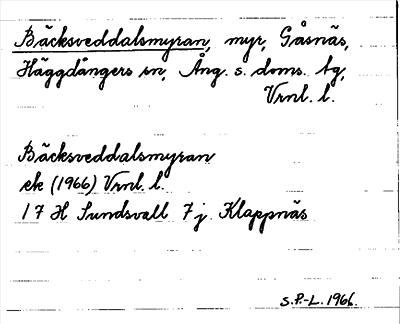 Bäcksveddalsmyran, myr, Gåsnäs,
Häggdångers sn, Ång. s. doms. tg,
Vrnl. l.
Bäcksveddalsmyran
ek (1966) Vrnl. l.
17 H Sundsvall 7 j. Klappnäs
S.P.-L. 1966.